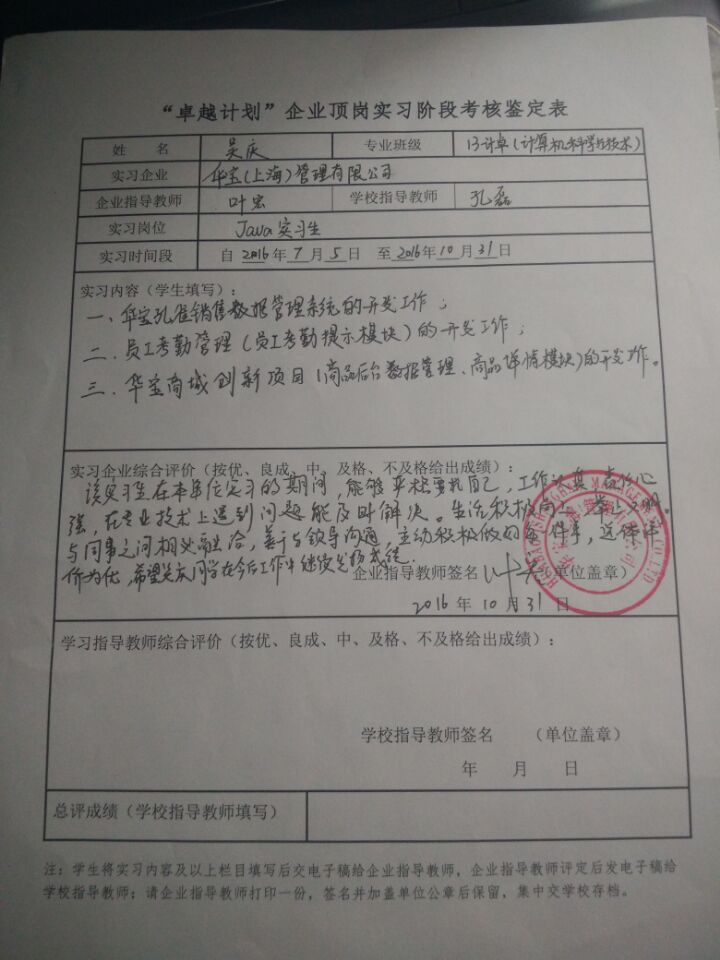 “卓越计划”企业顶岗实习阶段考核鉴定表
姓 名 吴庆 专业班级 13计卓(计算机科学与技术)
实习企业 华宝(上海)管理有限公司
企业指导教师 叶宏 学校指导教师 孔磊
实习岗位 Java实习生
实习时间段 自 2016 年 7 月 5 日 至 2016 年 10 月 31 日
实习内容（学生填写）：
一、华宝孔雀销售数据管理系统的开发工作；
二、员工考勤管理(员工考勤提示模块)的开发工作；
三、华宝商城创新项目(商品后台数据管理、商品详情模块)的开发工作。
实习企业综合评价（按优、良成、中、及格、不及格给出成绩）：
该实习生在本单位实习的期间，能够严格要求自己，工作认真，责任心
强，在专业技术上遇到问题能及时解决。生活积极向上，举止文明。
与同事之间相处融洽，善于与领导沟通，主动积极做好每件事，总体评
价为优，希望吴庆同学在今后工作中继续发扬
企业指导教师签名 叶宏 （单位盖章）
2016 年 10 月 31 日
学习指导教师综合评价（按优、良成、中、及格、不及格给出成绩）：
学校指导教师签名 （单位盖章）
年 月 日
总评成绩（学校指导教师填写）
注：学生将实习内容及以上栏目填写后交电子稿给企业指导教师，企业指导教师评定后发电子稿给
学校指导教师；请企业指导教师打印一份，签名并加盖单位公章后保留，集中交学校存档。